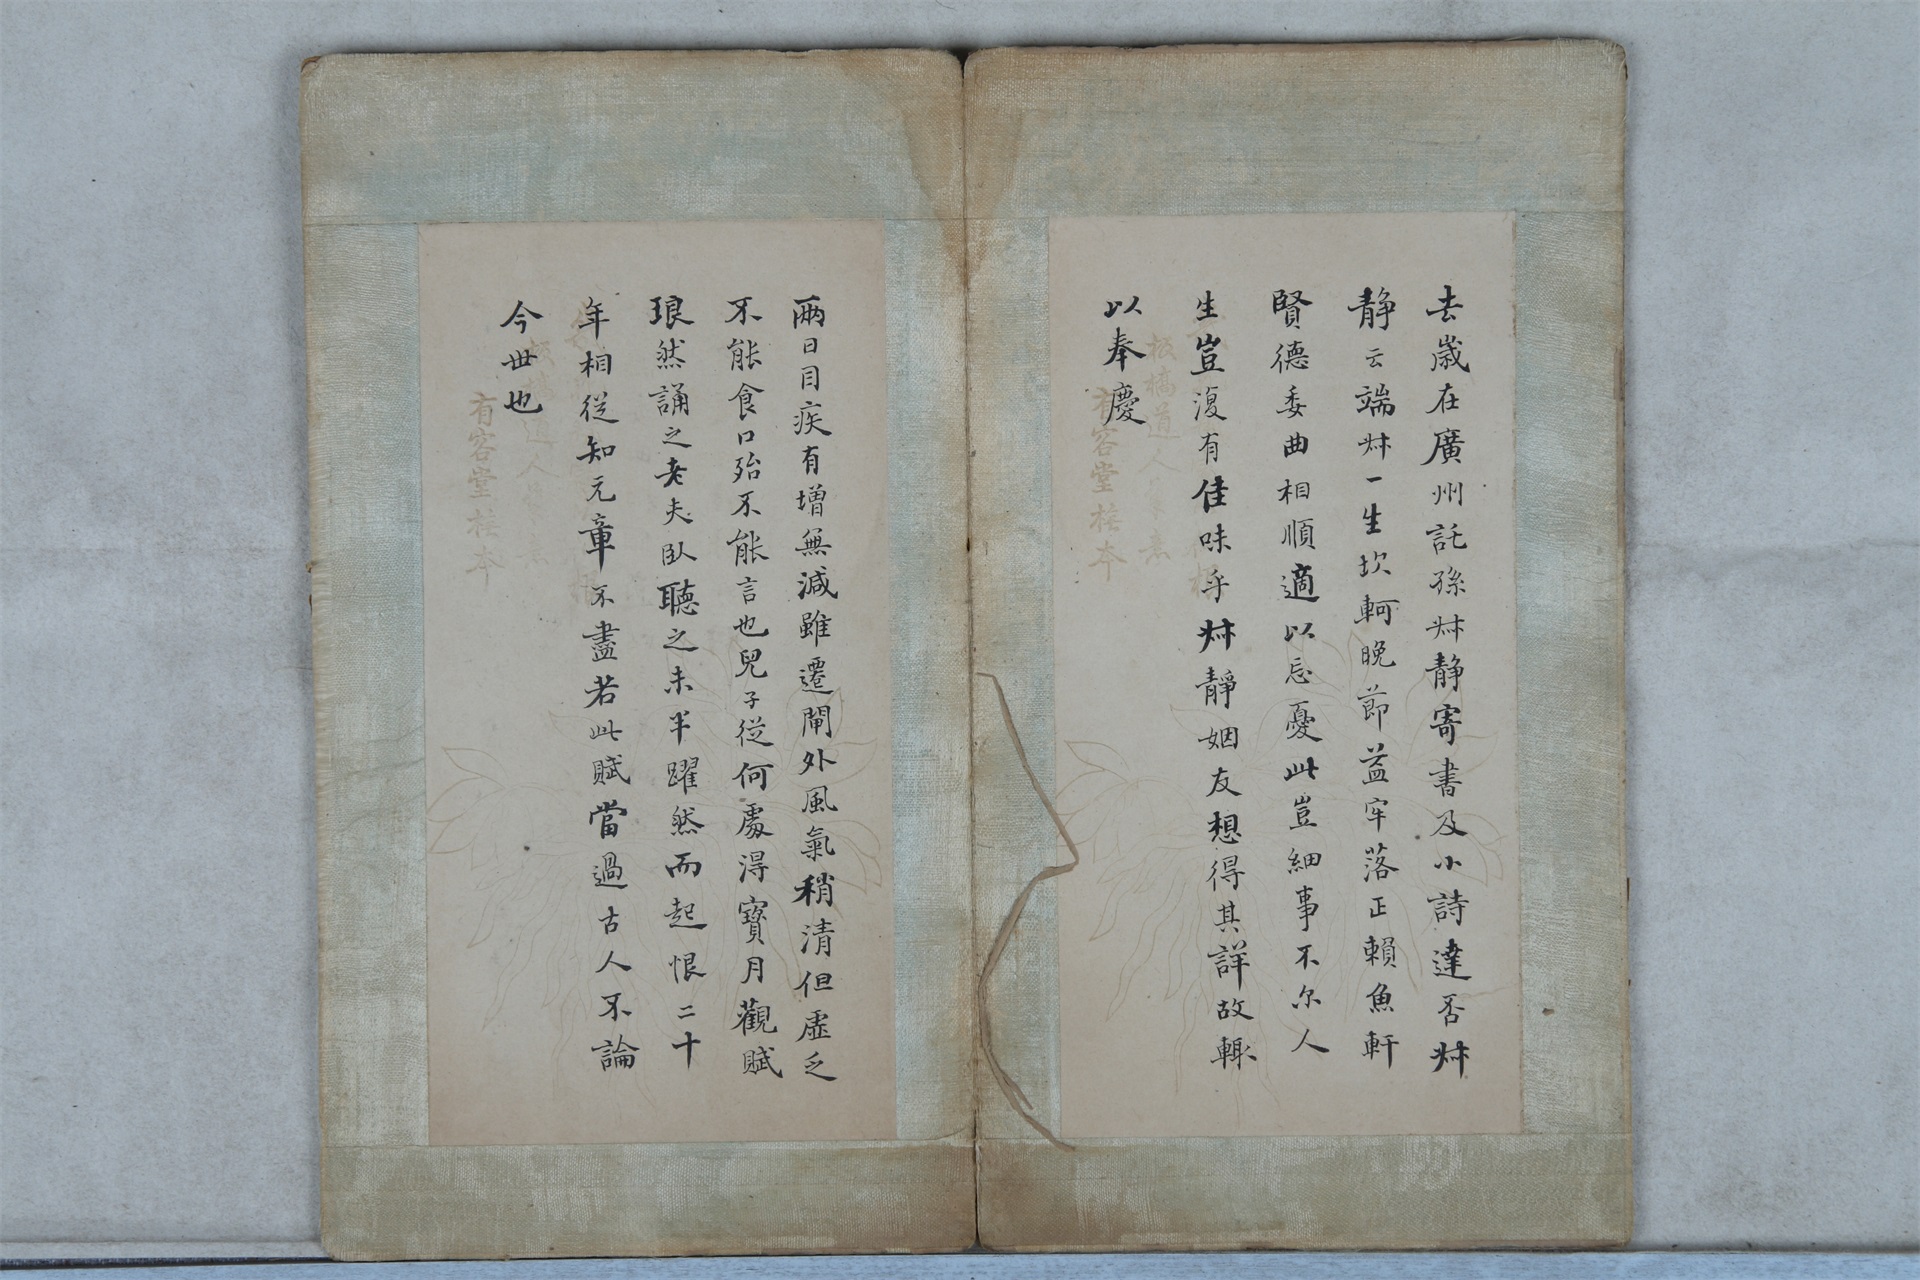 去嵗在廣州託孫叔静寄書及小詩達否叔
静云端叔一生坎軻晚莭益牢落正賴魚軒
賢德委曲相順適以忘憂此豈細事不尔人
生豈復有佳味乎叔靜姻友想得其詳故輙
以奉慶
板橋道人
有容堂
兩日目疾有增無減雖遷閘外風氣稍清但虛乏
不能食口殆不能言也兒子從何處得寶月觀賦
琅然誦之老夫臥聽之未半躍然而起恨二十
年相從知元章不盡若此賦當過古人不論
今世也
有容堂